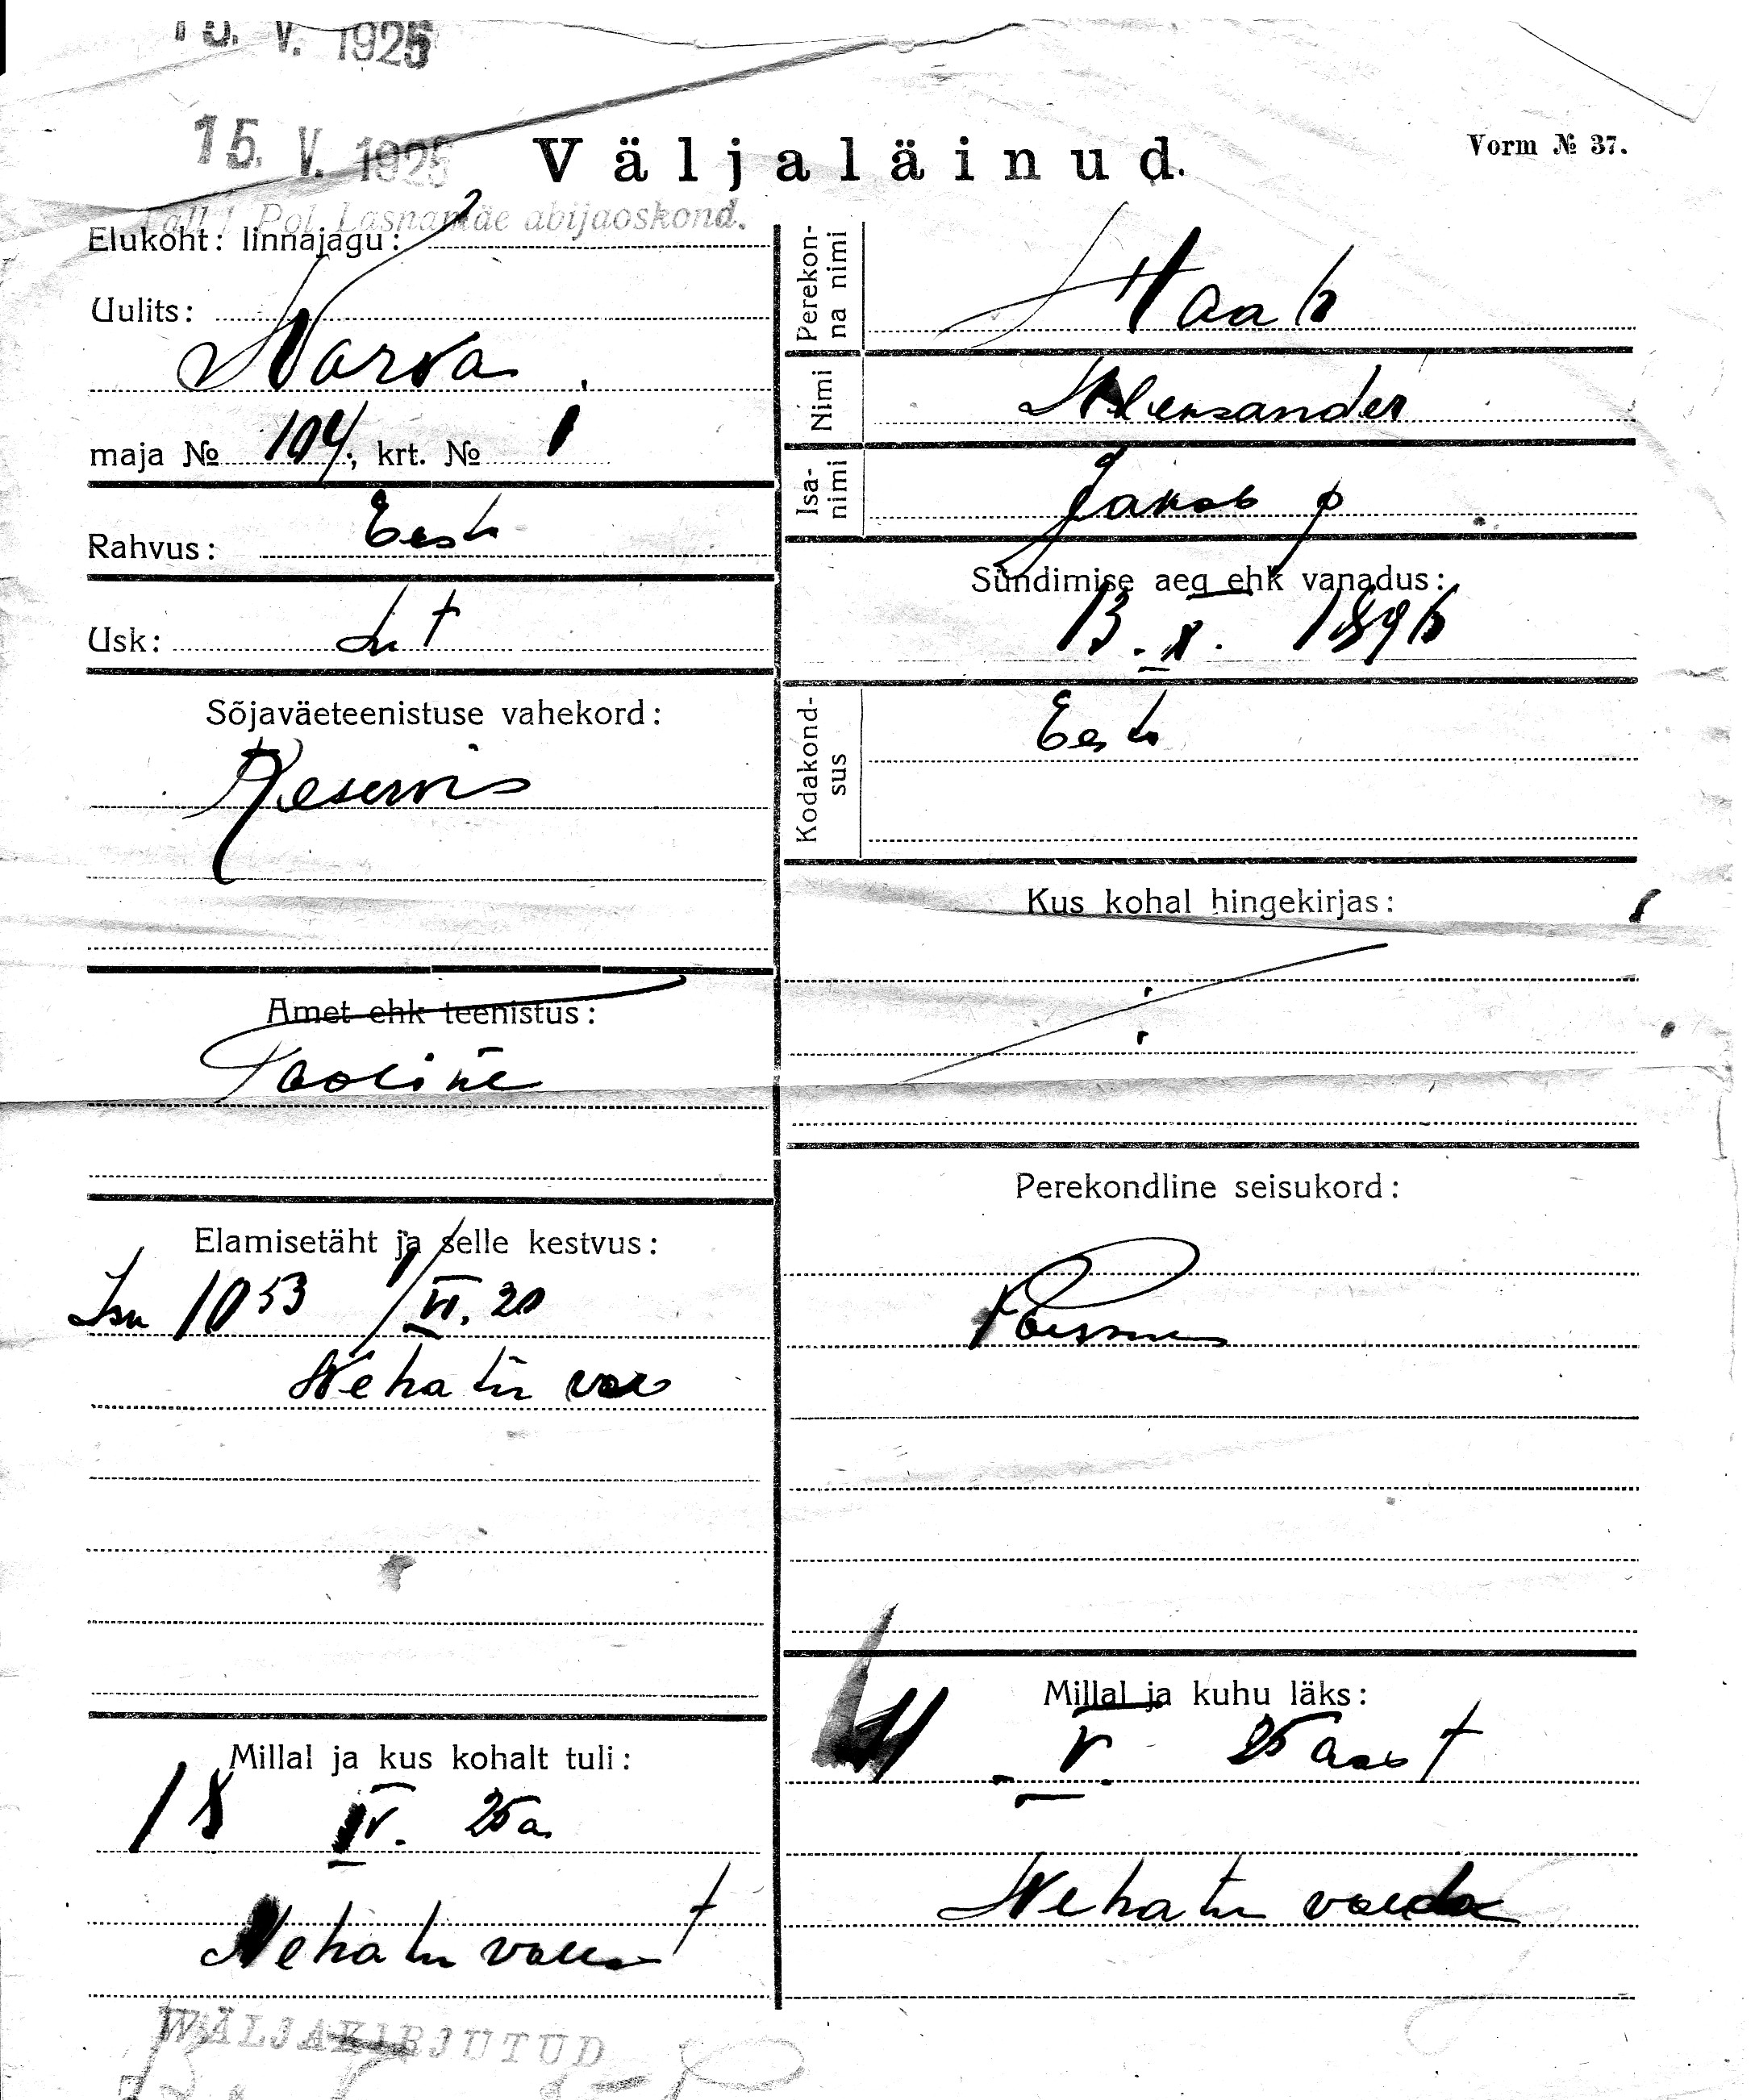 15. V. 1925
15. V. 1925
Väljaläinud.
Vorm № 37.
Tall. I Pol. Lasnamäe abijaoskond.
Elukoht: linnajagu:
Uulits:
Narva
maja № 104, krt. № 1
Rahvus: Eesti
Usk: Lut
Sõjaväeteenistuse vahekord:
Reservis
Amet ehk teenistus:
Tööline
Elamisetäht ja selle kestvus:
Isn 1053 1/VI. 20
Nehatu
Millal ja kus kohalt tuli:
18 IV. 25 a.
Nehatu vallast
WÄLJAKIRJUTUD
Perekonna nimi
Haab
Nimi
Aleksander
Isanimi
Jakob p
Sündimise aeg ehk vanadus:
13. X. 1896
Kodakondsus
Eesti
Kus kohal hingekirjas:
Perekondline seisukord:
Poissmes
Millal ja kuhu läks:
V. 25 aast
Nehatu valda